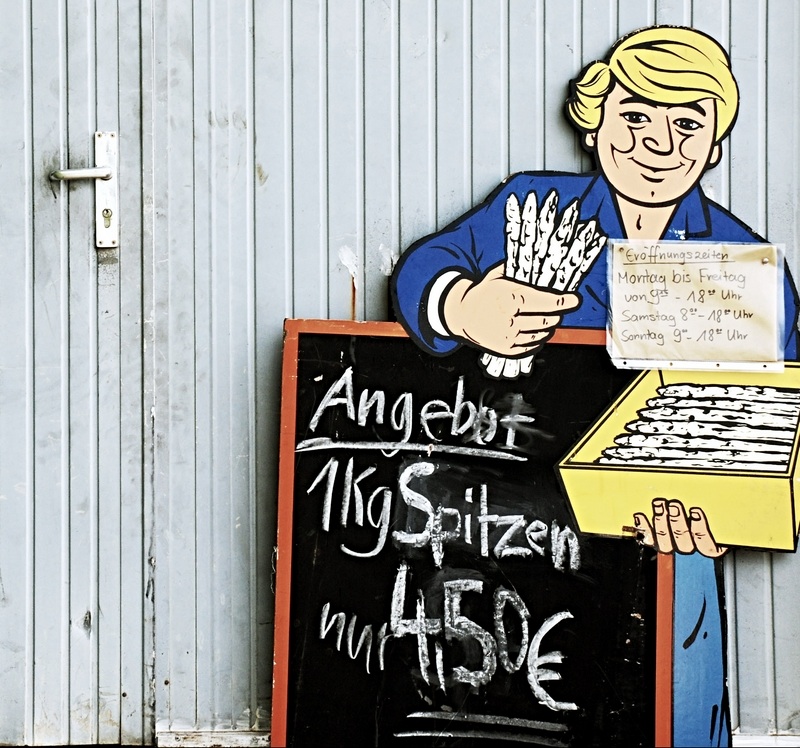 Eröffnungszeiten
Montag bis Freitag
von 9⁰⁰ - 18⁰⁰ Uhr
Samstag 8⁰⁰ - 18⁰⁰ Uhr
Sonntag 9⁰⁰ - 18⁰⁰ Uhr
Angebot
1Kg Spitzen
nur 4,50€